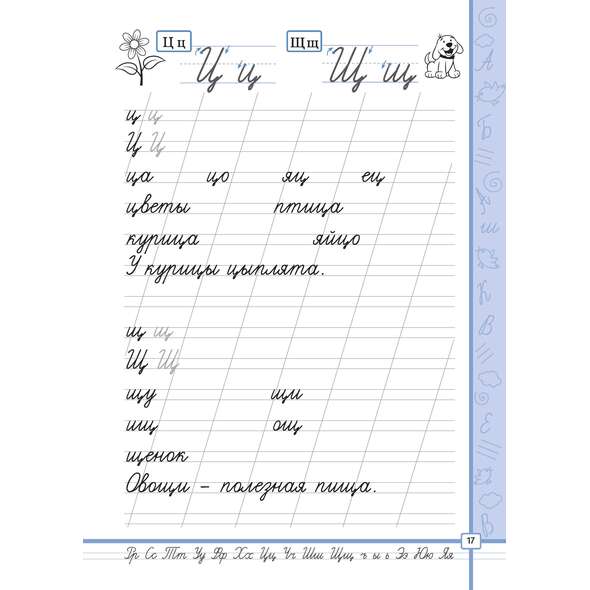 Ц ц Ц ц Щ щ Щ щ
ц ц
Ц Ц
ца цо яц ец
цветы птица
курица яйцо
У курицы цыплята.
щ щ
Щ Щ
щу щи
ищ ощ
щенок
Овощи – полезная пища.
17
Рр Сс Тт Уу Фф Хх Цц Чч Шш Щщ ъ ы ь Ээ Юю Яя